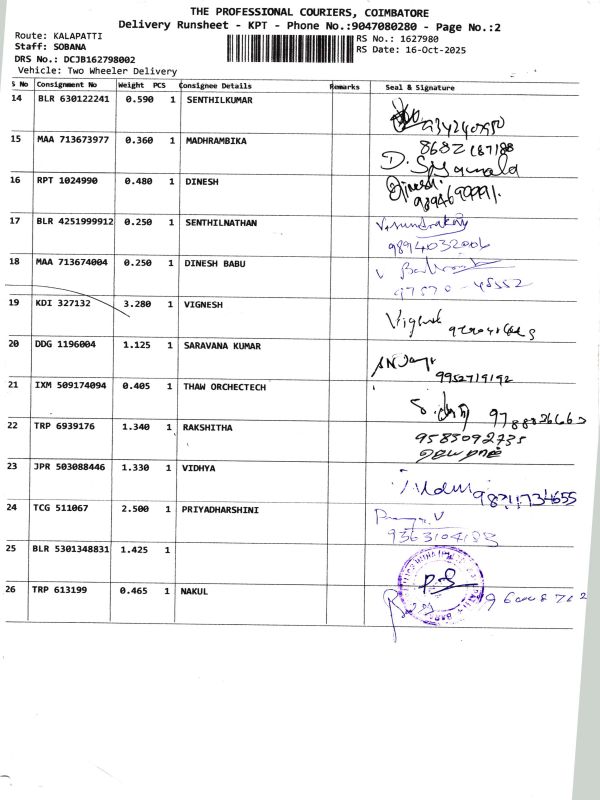 THE PROFESSIONAL COURIERS, COIMBATORE
Delivery Runsheet - KPT - Phone No.:9047080280 - Page No.:2
Route: KALAPATTI
RS No.: 1627980
Staff: SOBANA
RS Date: 16-Oct-2025
DRS No.: DCJB162798002
Vehicle: Two Wheeler Delivery
S No Consignment No Weight PCS Consignee Details Remarks Seal & Signature
14 BLR 630122241 0.590 1 SENTHILKUMAR
15 MAA 713673977 0.360 1 MADHRAMBIKA
8682187188
D.
16 RPT 1024990 0.480 1 DINESH
Dinesh.
9894699991.
17 BLR 4251999912 0.250 1 SENTHILNATHAN
9894032006
18 MAA 713674004 0.250 1 DINESH BABU
97570-45552
19 KDI 327132 3.280 1 VIGNESH
Vignesh
20 DDG 1196004 1.125 1 SARAVANA KUMAR
9952719192
21 IXM 509174094 0.405 1 THAW ORCHECTECH
22 TRP 6939176 1.340 1 RAKSHITHA
9585092735
23 JPR 503088446 1.330 1 VIDHYA
24 TCG 511067 2.500 1 PRIYADHARSHINI
9363104183
25 BLR 5301348831 1.425 1
26 TRP 613199 0.465 1 NAKUL